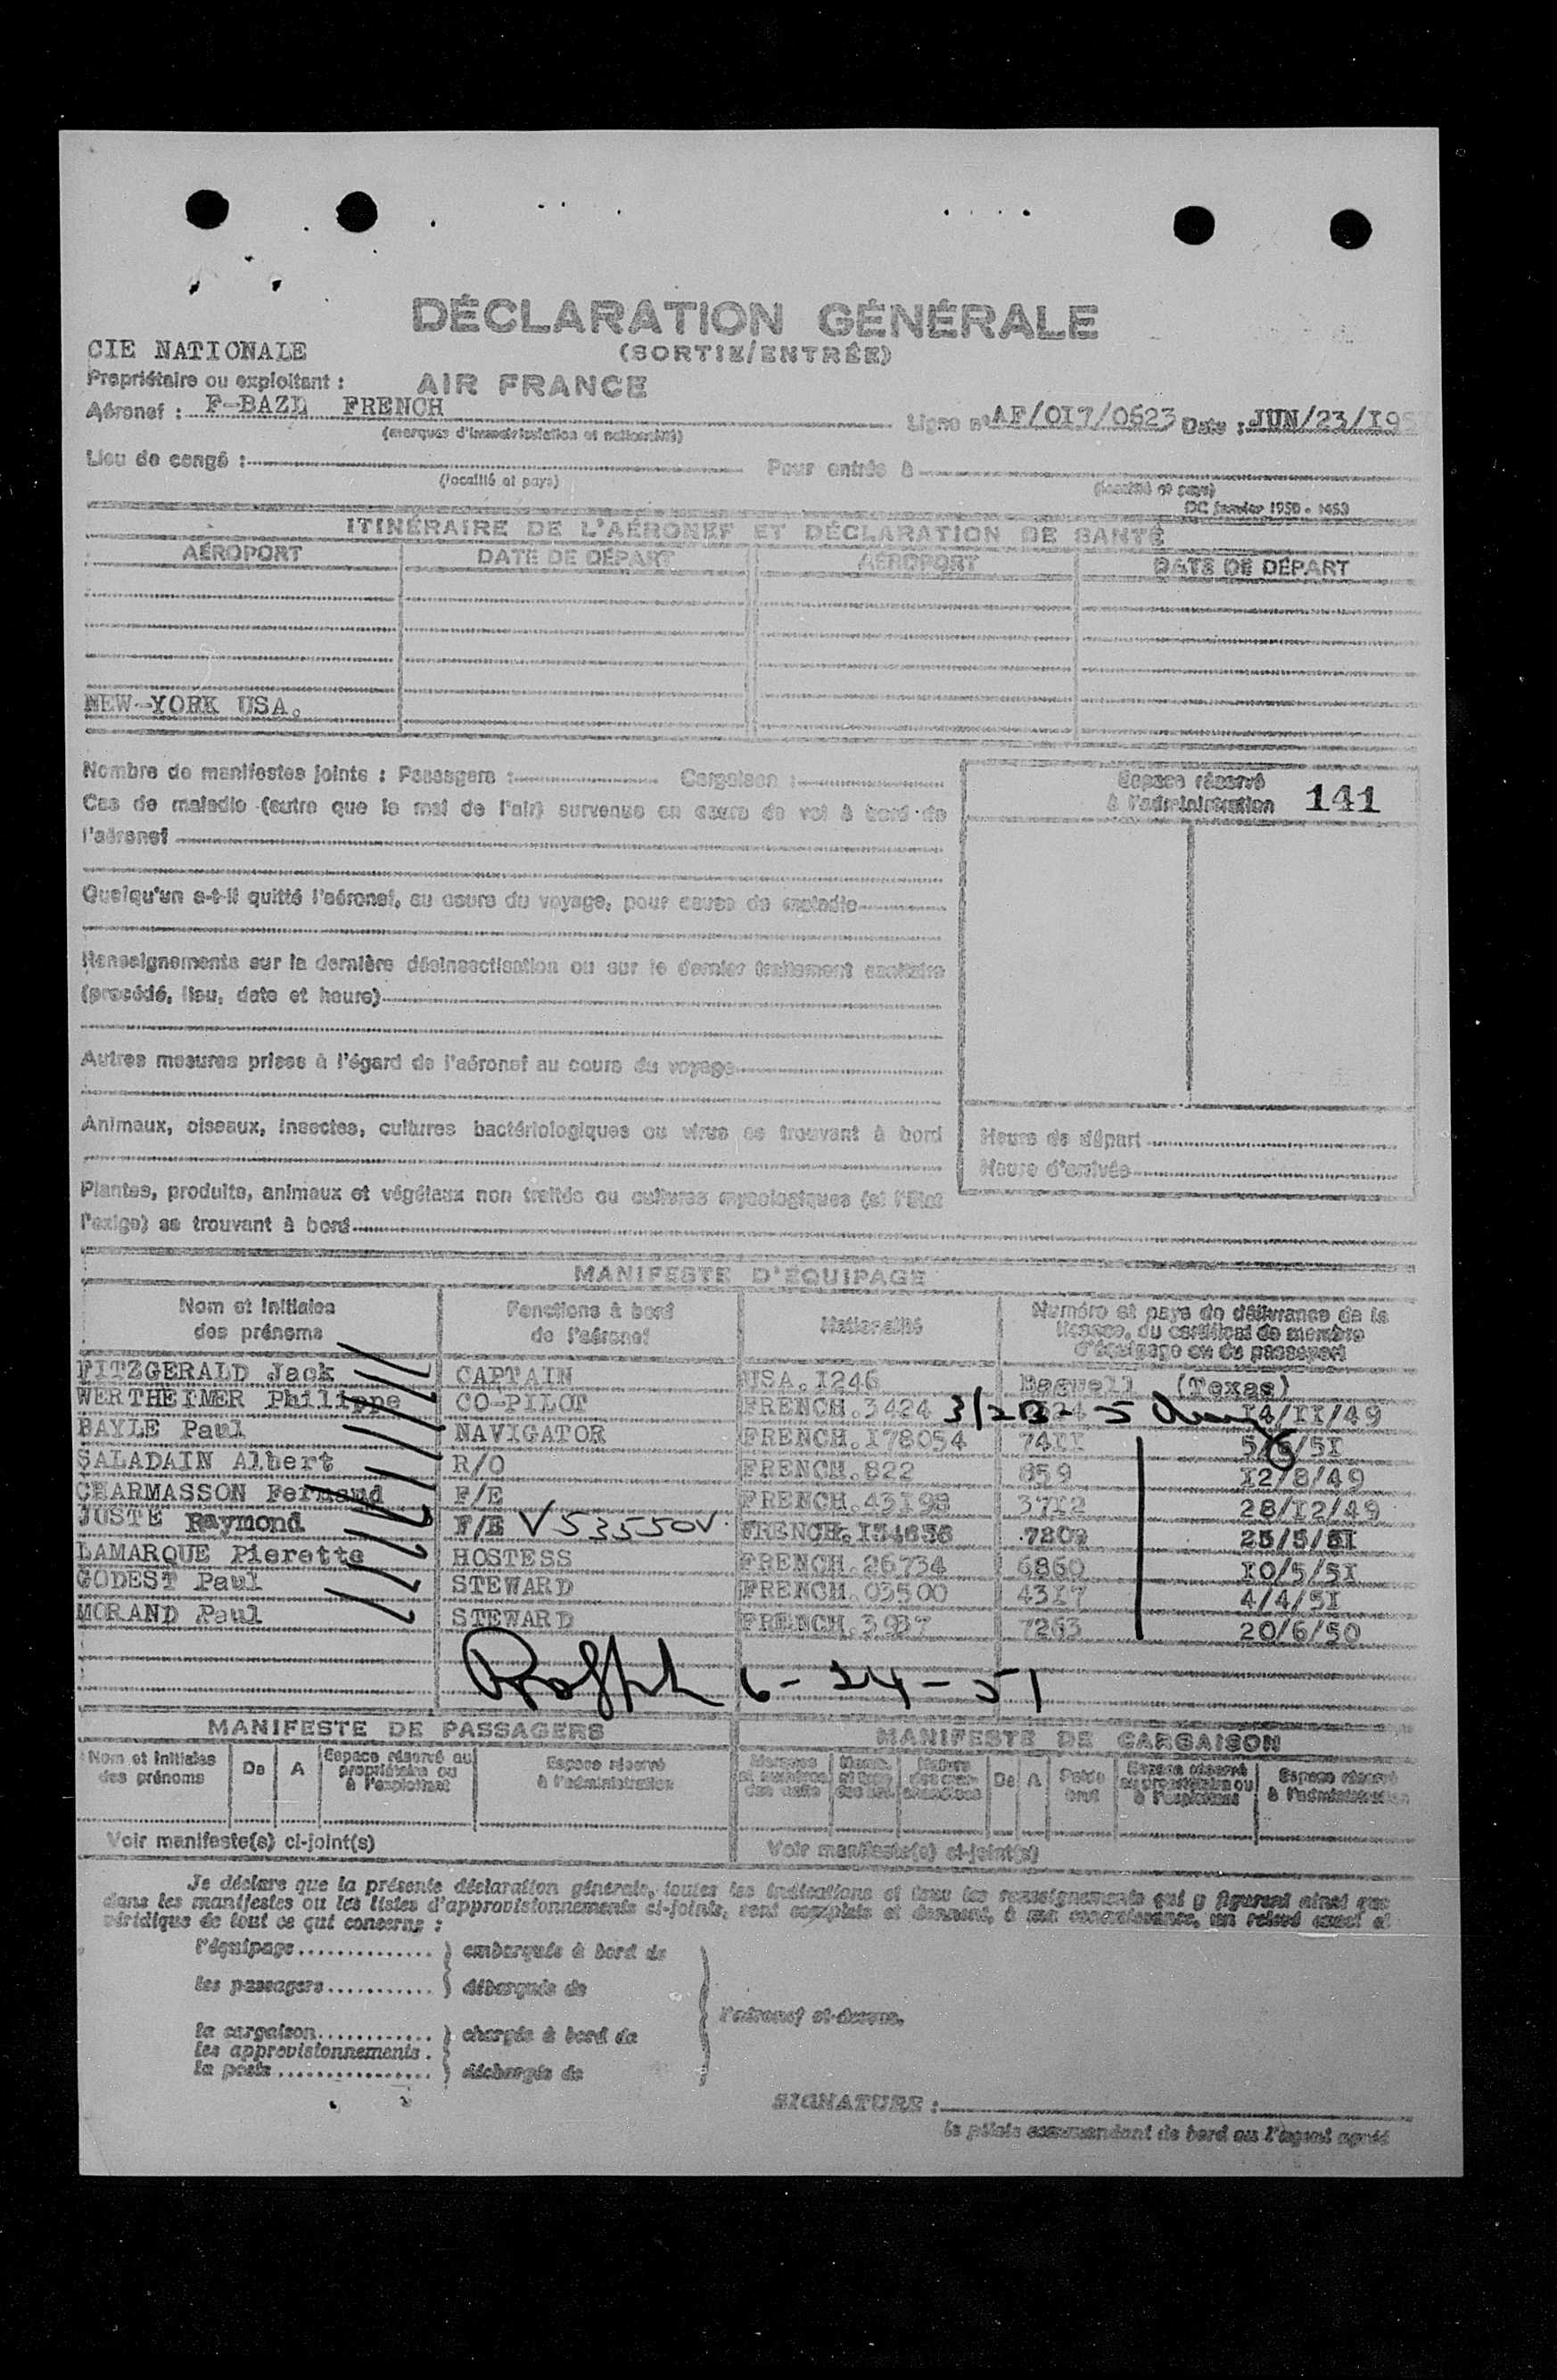 DÉCLARATION GÉNÉRALE
(SORTIE/ENTRÉE)
CIE NATIONALE
Propriétaire ou exploitant : AIR FRANCE
Aéronef : F-BAZL FRENCH Ligne n° AF/OI7/0623 Date : JUN/23/I95
(marques d'immatriculation et nationalité)
Lieu de congé : Pour entrée à
(localité et pays) (localité et pays)
DC Janvier 1950 - 1453
ITINÉRAIRE DE L'AÉRONEF ET DÉCLARATION DE SANTÉ
AÉROPORT DATE DE DÉPART AÉROPORT DATE DE DÉPART
NEW-YORK USA.
Nombre de manifestes joints : Passagers : Cargaison :
Cas de maladie (autre que le mal de l'air) survenus en cours de vol à bord de
l'aéronef
Espace réservé
à l'administration 141
Quelqu'un a-t-il quitté l'aéronef, au cours du voyage, pour cause de maladie
Renseignements sur la dernière désinsectisation ou sur le dernier traitement sanitaire
(procédé, lieu, date et heure)
Autres mesures prises à l'égard de l'aéronef au cours du voyage
Animaux, oiseaux, insectes, cultures bactériologiques ou virus se trouvant à bord
Heure de départ
Heure d'arrivée
Plantes, produits, animaux et végétaux non traités ou cultures mycologiques (si l'État
l'exige) se trouvant à bord
MANIFESTE D'ÉQUIPAGE
Nom et initiales des prénoms Fonctions à bord de l'aéronef Nationalité Numéro et pays de délivrance de la licence, du certificat de membre d'équipage ou du passeport
FITZGERALD Jack CAPTAIN USA.I246 Bagwell (Texas)
WERTHEIMER Philippe CO-PILOT FRENCH.3424 I4/II/49
BAYLE Paul NAVIGATOR FRENCH.I78054 74II 5/6/5I
SALADAIN Albert R/O FRENCH.822 859 I2/8/49
CHARMASSON Fernand F/E FRENCH.43I98 37I2 28/I2/49
JUSTE Raymond F/E V53550V 25/5/5I
LAMARQUE Pierette HOSTESS FRENCH.26734 6860 I0/5/5I
GODEST Paul STEWARD FRENCH.03500 43I7 4/4/5I
MORAND Paul STEWARD FRENCH.3937 7263 20/6/50
6-24-51
MANIFESTE DE PASSAGERS MANIFESTE DE CARGAISON
Nom et initiales des prénoms De A Espace réservé au propriétaire ou à l'exploitant Espace réservé à l'administration
De A Poids brut Espace réservé au propriétaire ou à l'exploitant Espace réservé à l'administration
Voir manifeste(s) ci-joint(s) Voir manifeste(s) ci-joint(s)
Je déclare que la présente déclaration générale, toutes les indications et tous les renseignements qui y figurent ainsi que
dans les manifestes ou les listes d'approvisionnements ci-joints, sont complets et donnent, à ma connaissance, un relevé exact et
véridique de tout ce qui concerne :
l'équipage.............. } embarqués à bord de
les passagers........... } débarqués de
l'aéronef ci-dessus.
la cargaison............ } chargés à bord de
les approvisionnements .
la poste ................ } déchargés de
SIGNATURE :
Le pilote commandant de bord ou l'agent agréé